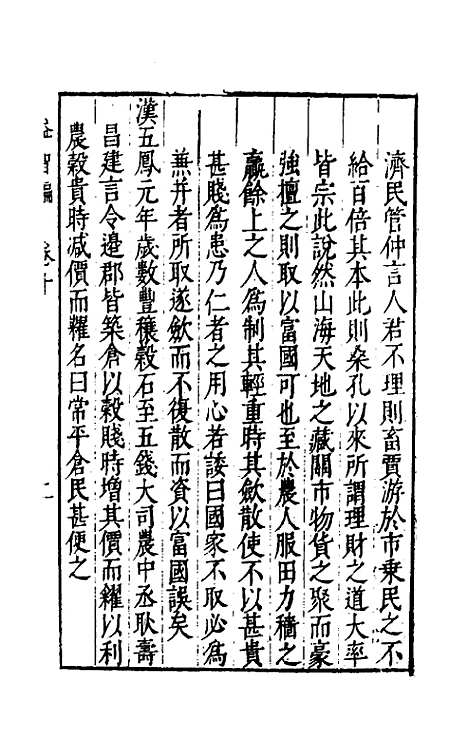 濟民管仲言人君不理則畜賈游於市乗民之不
給百倍其本此則桑孔以來所謂理財之道大率
皆宗此說然山海天地之藏關市物貨之聚而豪
強擅之則取以富國可也至於農人服田力穡之
贏餘上之人為制其輕重時其斂散使不以甚貴
甚賤為患乃仁者之用心若諉曰國家不取必為
兼并者所取遂斂而不復散而資以富國誤矣
漢五鳳元年歲數豐穰穀石至五錢大司農中丞耿壽
昌建言令邊郡皆築倉以穀賤時增其價而糴以利
農穀貴時减價而糶名曰常平倉民甚便之
益智編
卷十
二